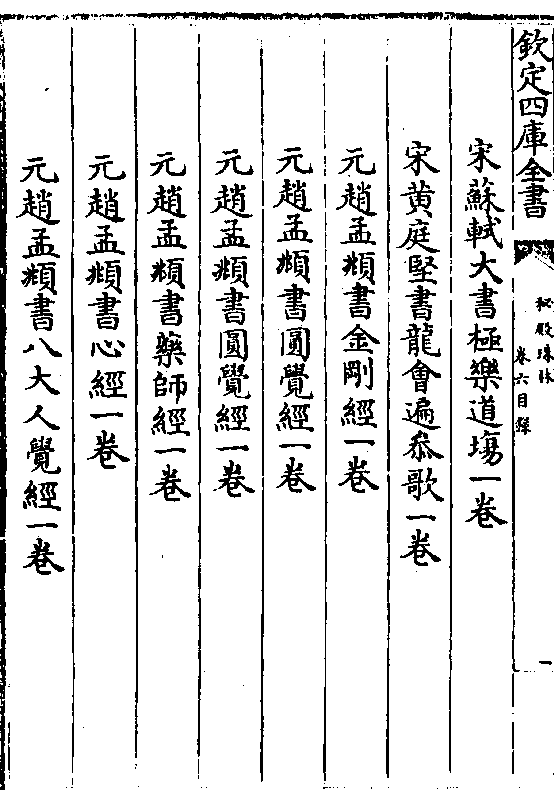 欽定四庫全書
秘殿珠林
卷六目錄
一
宋蘇軾大書極樂道塲一卷
宋黃庭堅書龍會遍叅歌一卷
元趙孟頫書金剛經一卷
元趙孟頫書圓覺經一卷
元趙孟頫書圓覺經一卷
元趙孟頫書藥師經一卷
元趙孟頫書心經一卷
元趙孟頫書八大人覺經一卷